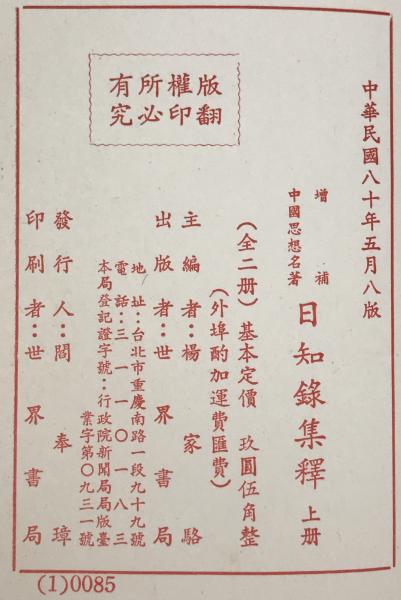 中華民國八十年五月八版
增補
中國思想名著
日知錄集釋 上册
(全二册) 基本定價 玖圓伍角整
(外埠酌加運費匯費)
主編者:楊家駱
出版者:世界書局
地址:台北市重慶南路一段九十九號
電話:三一一〇一八三
本局登記證字號:行政院新聞局局版臺
業字第〇九三一號
發行人:閻奉璋
印刷者:世界書局
版權所有
翻印必究
(1)0085